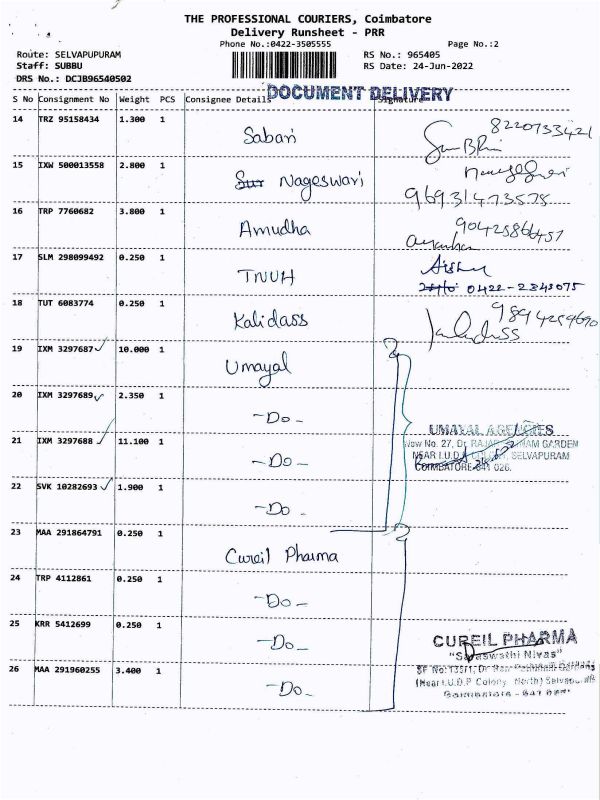 THE PROFESSIONAL COURIERS, Coimbatore
Delivery Runsheet - PRR
Phone No.:0422-3505555 Page No.:2
Route: SELVAPUPURAM RS No.: 965405
Staff: SUBBU RS Date: 24-Jun-2022
DRS No.: DCJB96540502
DOCUMENT DELIVERY
S No Consignment No Weight PCS Consignee Details Signature
14 TRZ 95158434 1.300 1 Sabari 8220733421
15 IXW 500013558 2.800 1 Nageswari
96931473578
16 TRP 7760682 3.800 1 Amudha
17 SLM 298099492 0.250 1 TNUH
0422-2343075
18 TUT 6083774 0.250 1 Kalidass
19 IXM 3297687 10.000 1 Umayal
20 IXM 3297689 2.350 1 -Do-
21 IXM 3297688 11.100 1 -Do-
UMAYAL AGENCIES
New No. 27, Dr. GARDEN
NEAR I.U.D.P COLONY, SELVAPURAM
COIMBATORE-641 026.
22 SVK 10282693 1.900 1 -Do-
23 MAA 291864791 0.250 1 Cureil Pharma
24 TRP 4112861 0.250 1 -Do-
25 KRR 5412699 0.250 1 -Do-
CUREIL PHARMA
"Saraswathi Nivas"
26 MAA 291960255 3.400 1 -Do-
(Near I.U.D.P Colony, North) Selvapuram